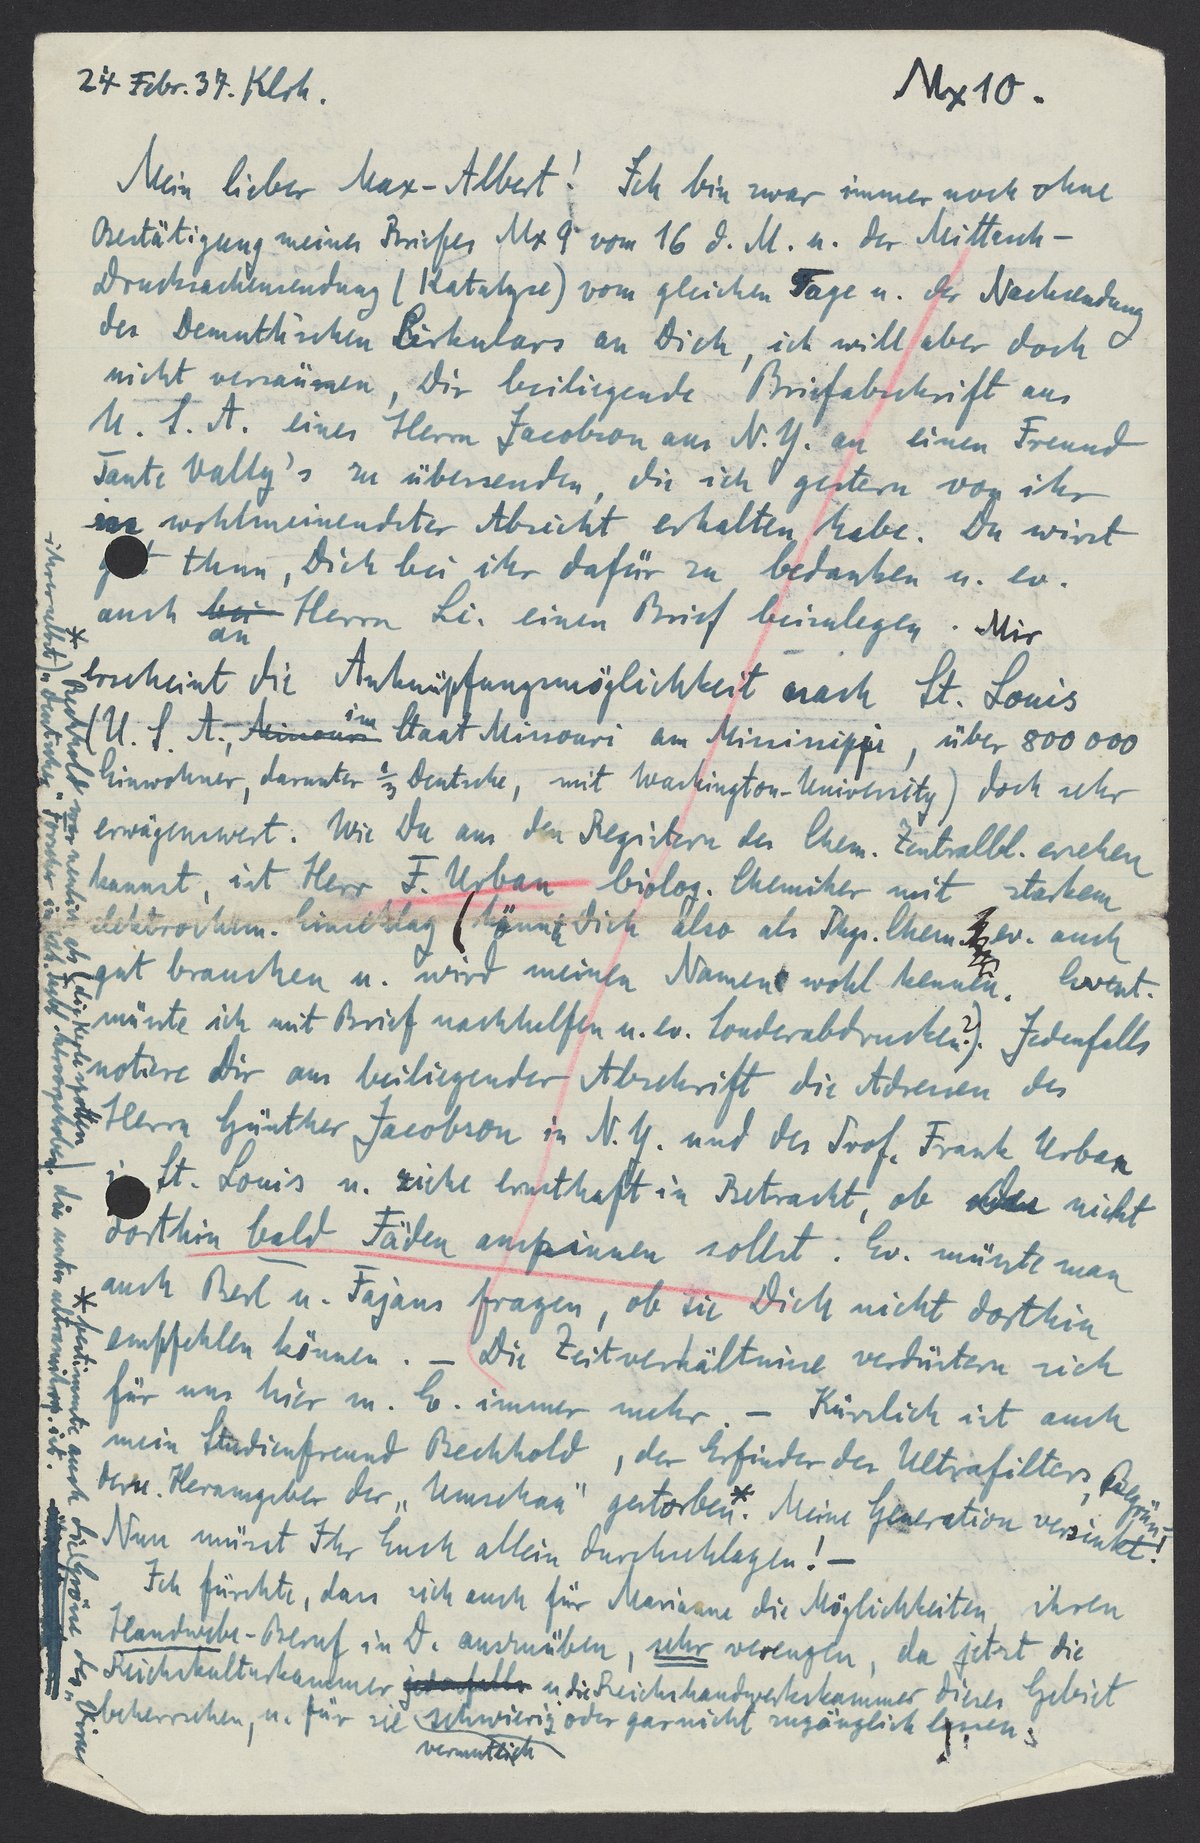 24 Febr. 37. Klrh.
Mx 10.
Mein lieber Max-Albert! Ich bin zwar immer noch ohne
Bestätigung meines Briefes Mx 9 vom 16 d. M. u. der Mittasch-
Drucksachensendung (Katalyse) vom gleichen Tage u. der Nachsendung
des Demuth'schen Cirkulars an Dich, ich will aber doch
nicht versäumen, Dir beiliegende Briefabschrift aus
U. S. A. eines Herrn Jacobson aus N. Y. an einen Freund
Tante Vally's zu übersenden, die ich gestern von ihr
in wohlmeinendster Absicht erhalten habe. Du wirst
gut thun, Dich bei ihr dafür zu bedanken u. ev.
auch bei an Herrn Li. einen Brief beizulegen. Mir
erscheint die Anknüpfungsmöglichkeit nach St. Louis
(U. S. A., Missouri im Staat Missouri am Missisippi, über 800 000
Einwohner, darunter 1/3 Deutsche, mit Washington-University) doch sehr
erwägenswert. Wie Du aus den Registern des Chem. Zentralbl. ersehen
kannst, ist Herr F. Urban biolog. Chemiker mit starkem
elektrochem. Einschlag (könnte Dich also als Phys. Chem. ev. auch
gut brauchen u. wird meinen Namen wohl kennen. Event.
müsste ich mit Brief nachhelfen u. ev. Sonderabdrucken?). Jedenfalls
notiere Dir aus beiliegender Abschrift die Adressen des
Herrn Günther Jacobson in N. Y. und des Prof. Frank Urban
in St. Louis u. ziehe ernsthaft in Betracht, ob Du nicht
dorthin bald Fäden anspinnen sollst. Ev. müsste man
auch Berl u. Fajans fragen, ob sie Dich nicht dorthin
empfehlen können. – Die Zeitverhältnisse verdüstern sich
für uns hier m. E. immer mehr. – Kürzlich ist auch
mein Studienfreund Bechhold, der Erfinder des Ultrafilters, Begrün-
der u. Herausgeber der „Umschau" gestorben*. Meine Generation versinkt!
Nun müsst Ihr Euch allein durchschlagen! –
Ich fürchte, dass sich auch für Marianne die Möglichkeiten ihren
Handwebe-Beruf in D. auszuüben, sehr verengen, da jetzt die
Reichskulturkammer jedenfalls u. die Reichshandwerkskammer dieses Gebiet
beherrschen, u. für sie schwierig oder gar nicht zugänglich lassen.
vermutlich
* Bechhold war neulich als (die Kerle spotten
ihrer selbst) „deutscher" Forscher in
* bestimmte auch die Grösse der Viren
die unter ultramikrosp. ist.